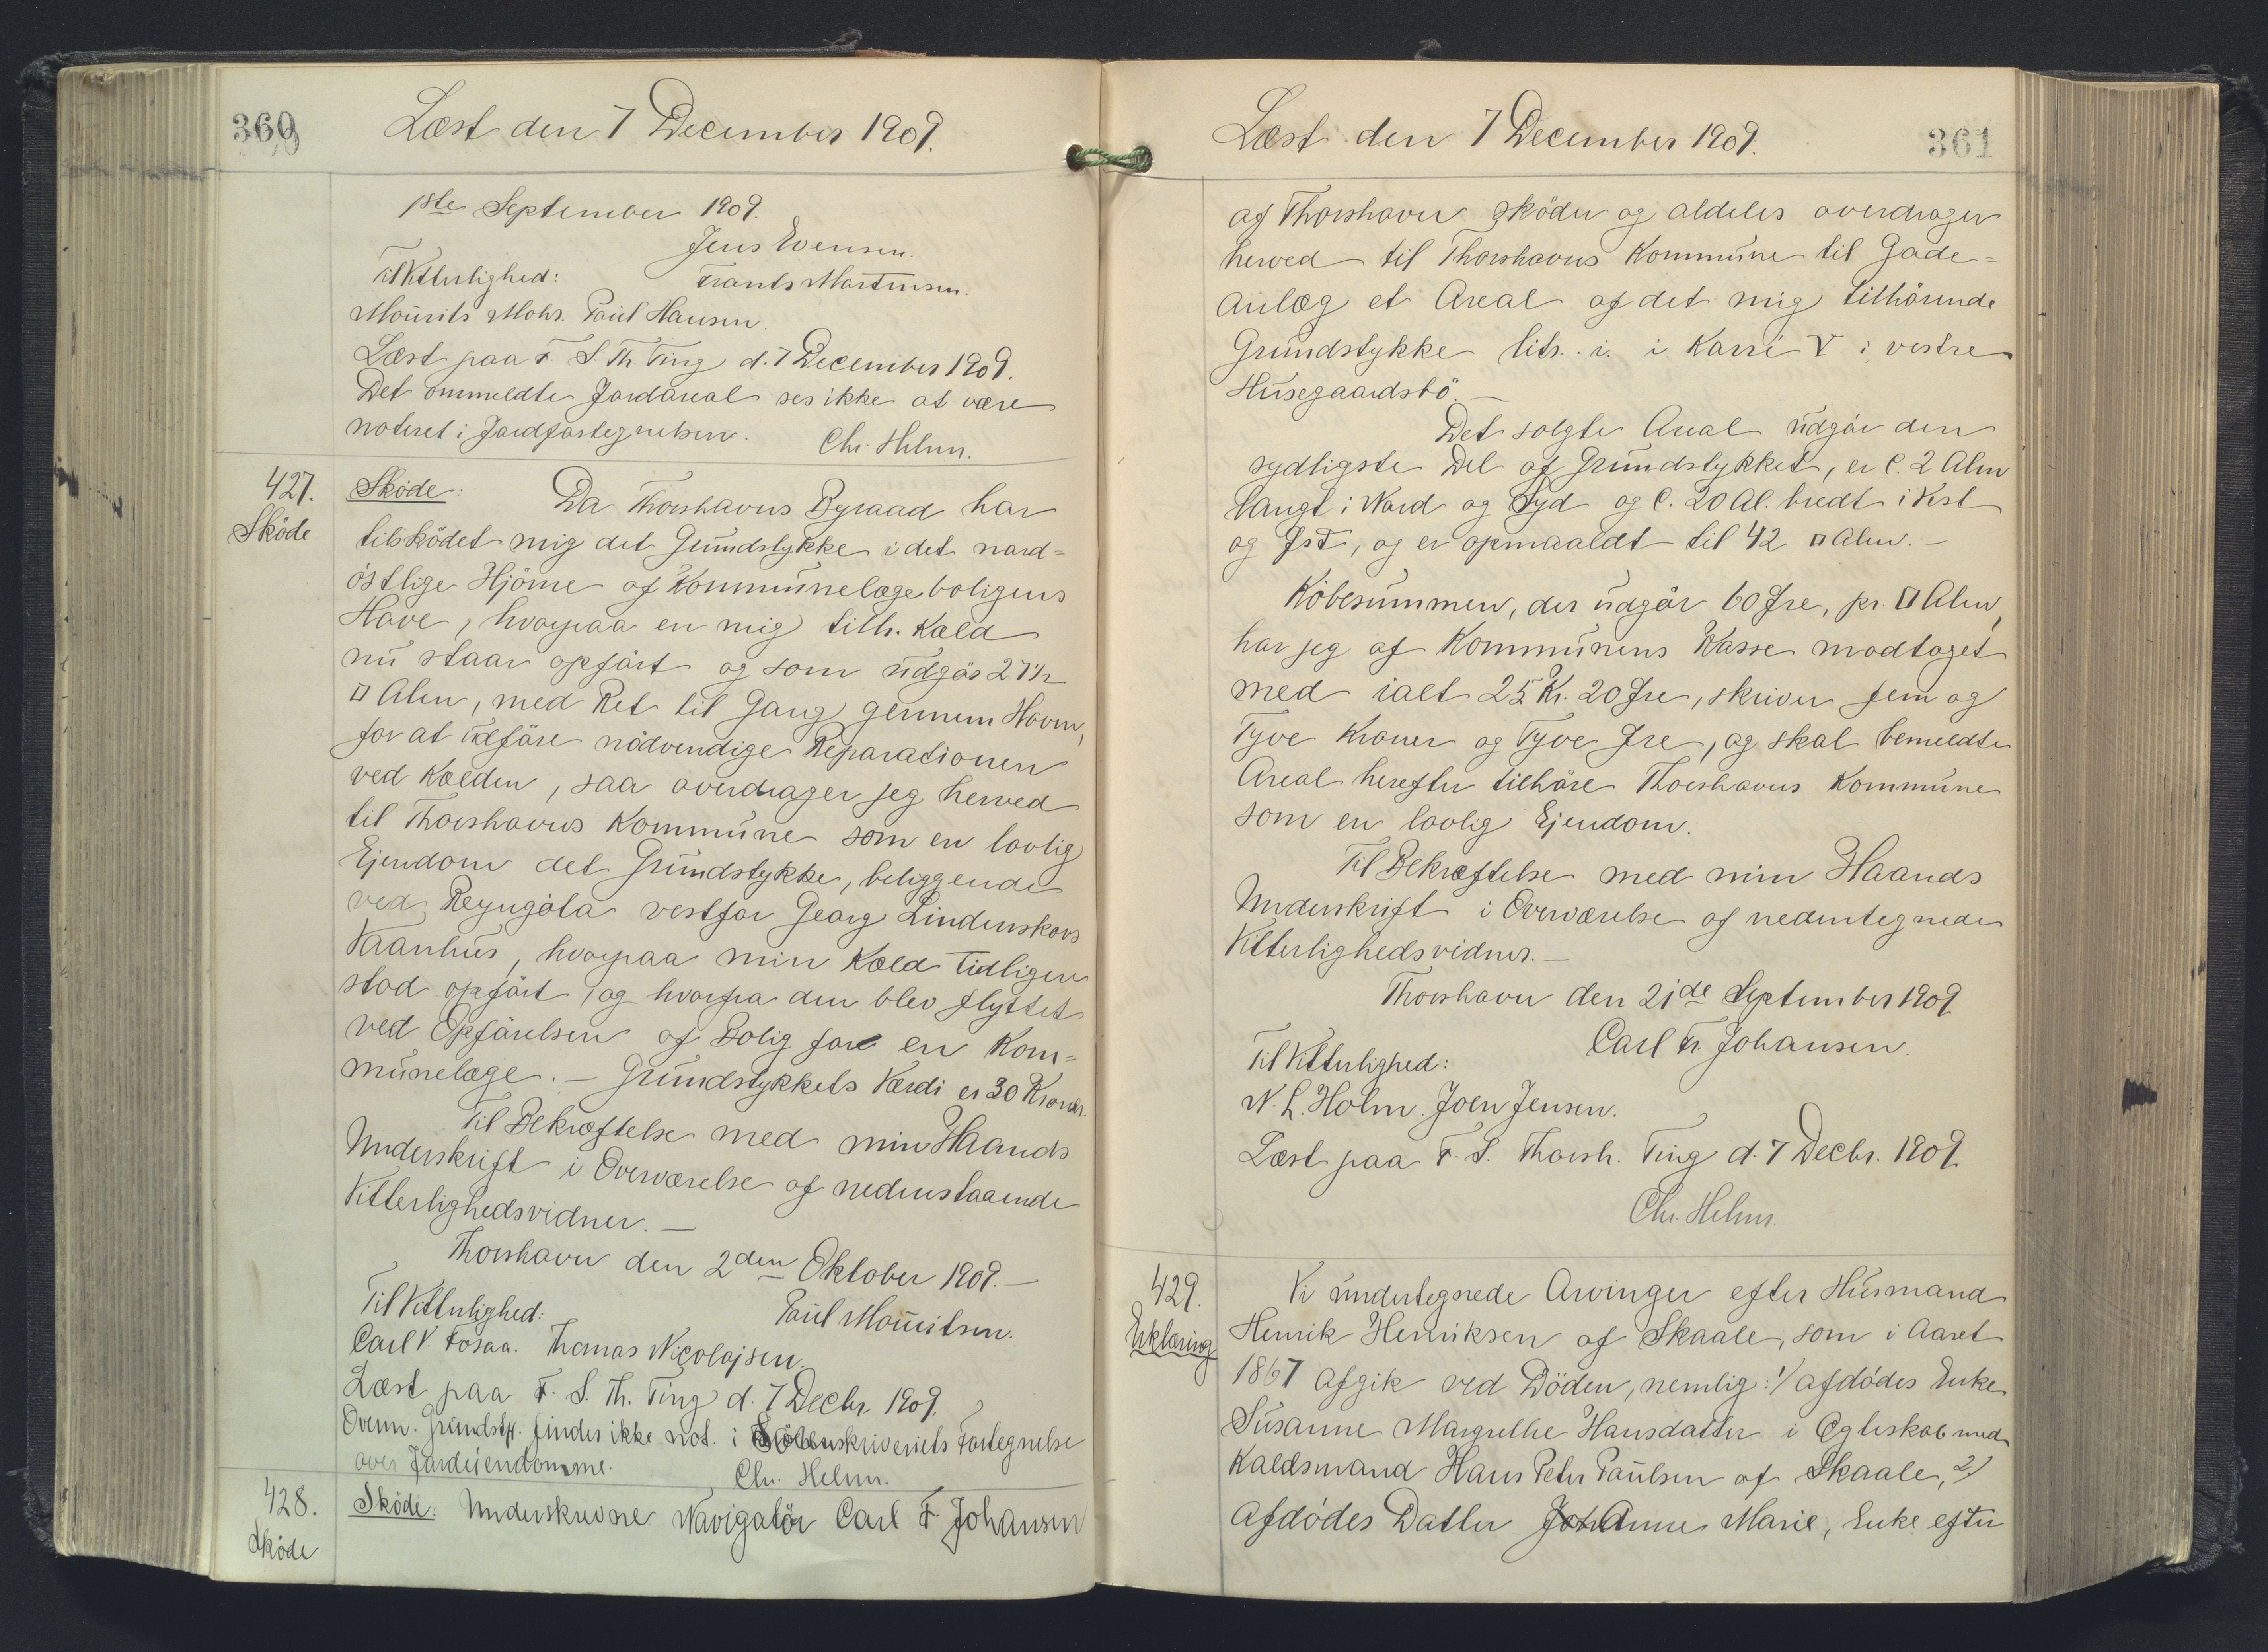 360
Læst den 7 December 1909.
1ste September 1909.
Jens Evensen.
Til Vitterlighed:
Frants Martensen.
Mourits Mohr. Paul Hansen.
Læst paa F. S. Th. Ting d. 7 December 1909.
Det ommeldte Jordareal ses ikke at være
noteret i Jordfortegnelsen.
Chr. Helm.
427.
Sköde
Sköde: Da Thorshavns Byraad har
tilsködet mig det Grundstykke i det nord=
östlige Hjörne af Kommunelægeboligens
Have, hvorpaa en mig tilh. Kæld
nu staar opfört og som udgör 27½
□ Alen, med Ret til Gang gennem Haven,
for at udföre nödvendige Reparationer
ved Kælden, saa overdrager jeg herved
til Thorshavns Kommune som en lovlig
Ejendom det Grundstykke, beliggende
ved Reyngöta vestfor Georg Lindenskovs
Vaanhus, hvorpaa min Kæld tidligere
stod opfört, og hvorfra den blev flyttet
ved Opförelsen af Bolig for en Kom=
munelæge. — Grundstykkets Værdi er 30 Kroner.
Til Bekræftelse med min Haands
Underskrift i Overværelse af nedenstaaende
Vitterlighedsvidner. —
Thorshavn den 2den Oktober 1909. —
Til Vitterlighed:
Paul Mouritsen.
Carl V. Fosaa. Thomas Nicolajsen.
Læst paa F. S. Th. Ting d. 7 Decbr. 1909.
Ovenn. Grundstk. findes ikke not. i Sörenskriveriets Fortegnelse
over Jordejendomme.
Chr. Helm.
428.
Sköde
Sköde: Underskrevne Navigatör Carl F Johansen
Læst den 7 December 1909.
361
af Thorshavn sköder og aldeles overdrager
herved til Thorshavns Kommune til Gade=
anlæg et Areal af det mig tilhörende
Grundstykke litr. i. i Karré V i vestre
Husegaardsbö. —
Det solgte Areal udgör den
sydligste Del af Grundstykket, er c. 2 Alen
langt i Nord og Syd og c. 20 Al. bredt i Vest
og Øst, og er opmaaldt til 42 □ Alen. —
Köbesummen, der udgör 60 Øre, pr. □ Alen,
har jeg af Kommunens Kasse modtaget
med ialt 25 Kr. 20 Øre, skriver fem og
Tyve Kroner og Tyve Øre, og skal bemeldte
Areal herefter tilhöre Thorshavns Kommune
som en lovlig Ejendom.
Til Bekræftelse med min Haands
Underskrift i Overværelse af nedentegnede
Vitterlighedsvidner. —
Thorshavn den 21de September 1909
Carl Fr. Johansen.
Til Vitterlighed:
N. L. Holm. Joen Jensen.
Læst paa F. S. Thorsh. Ting d. 7 Decbr. 1909.
Chr. Helm.
429.
Erklæring
Vi undertegnede Arvinger efter Husmand
Henrik Henriksen af Skaale, som i Aaret
1867 afgik ved Döden, nemlig: 1/ afdödes Enke
Susanne Margrethe Hansdatter i Ægteskab med
Kaldsmand Hans Peter Paulsen af Skaale, 2/
afdödes Datter Anne Marie, Enke efter